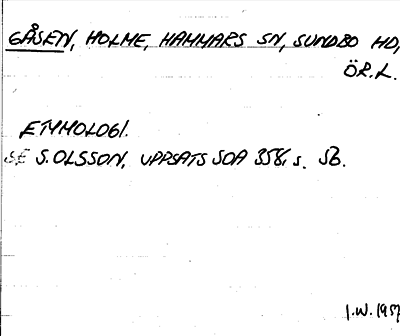 GÅSEN, HOLME, HAMMARS SN, SUNDBO HD,
ÖR.L.
ETYMOLOGI.
SE S.OLSSON, UPPSATS SOA 358, s. 53.
I.W. 1957